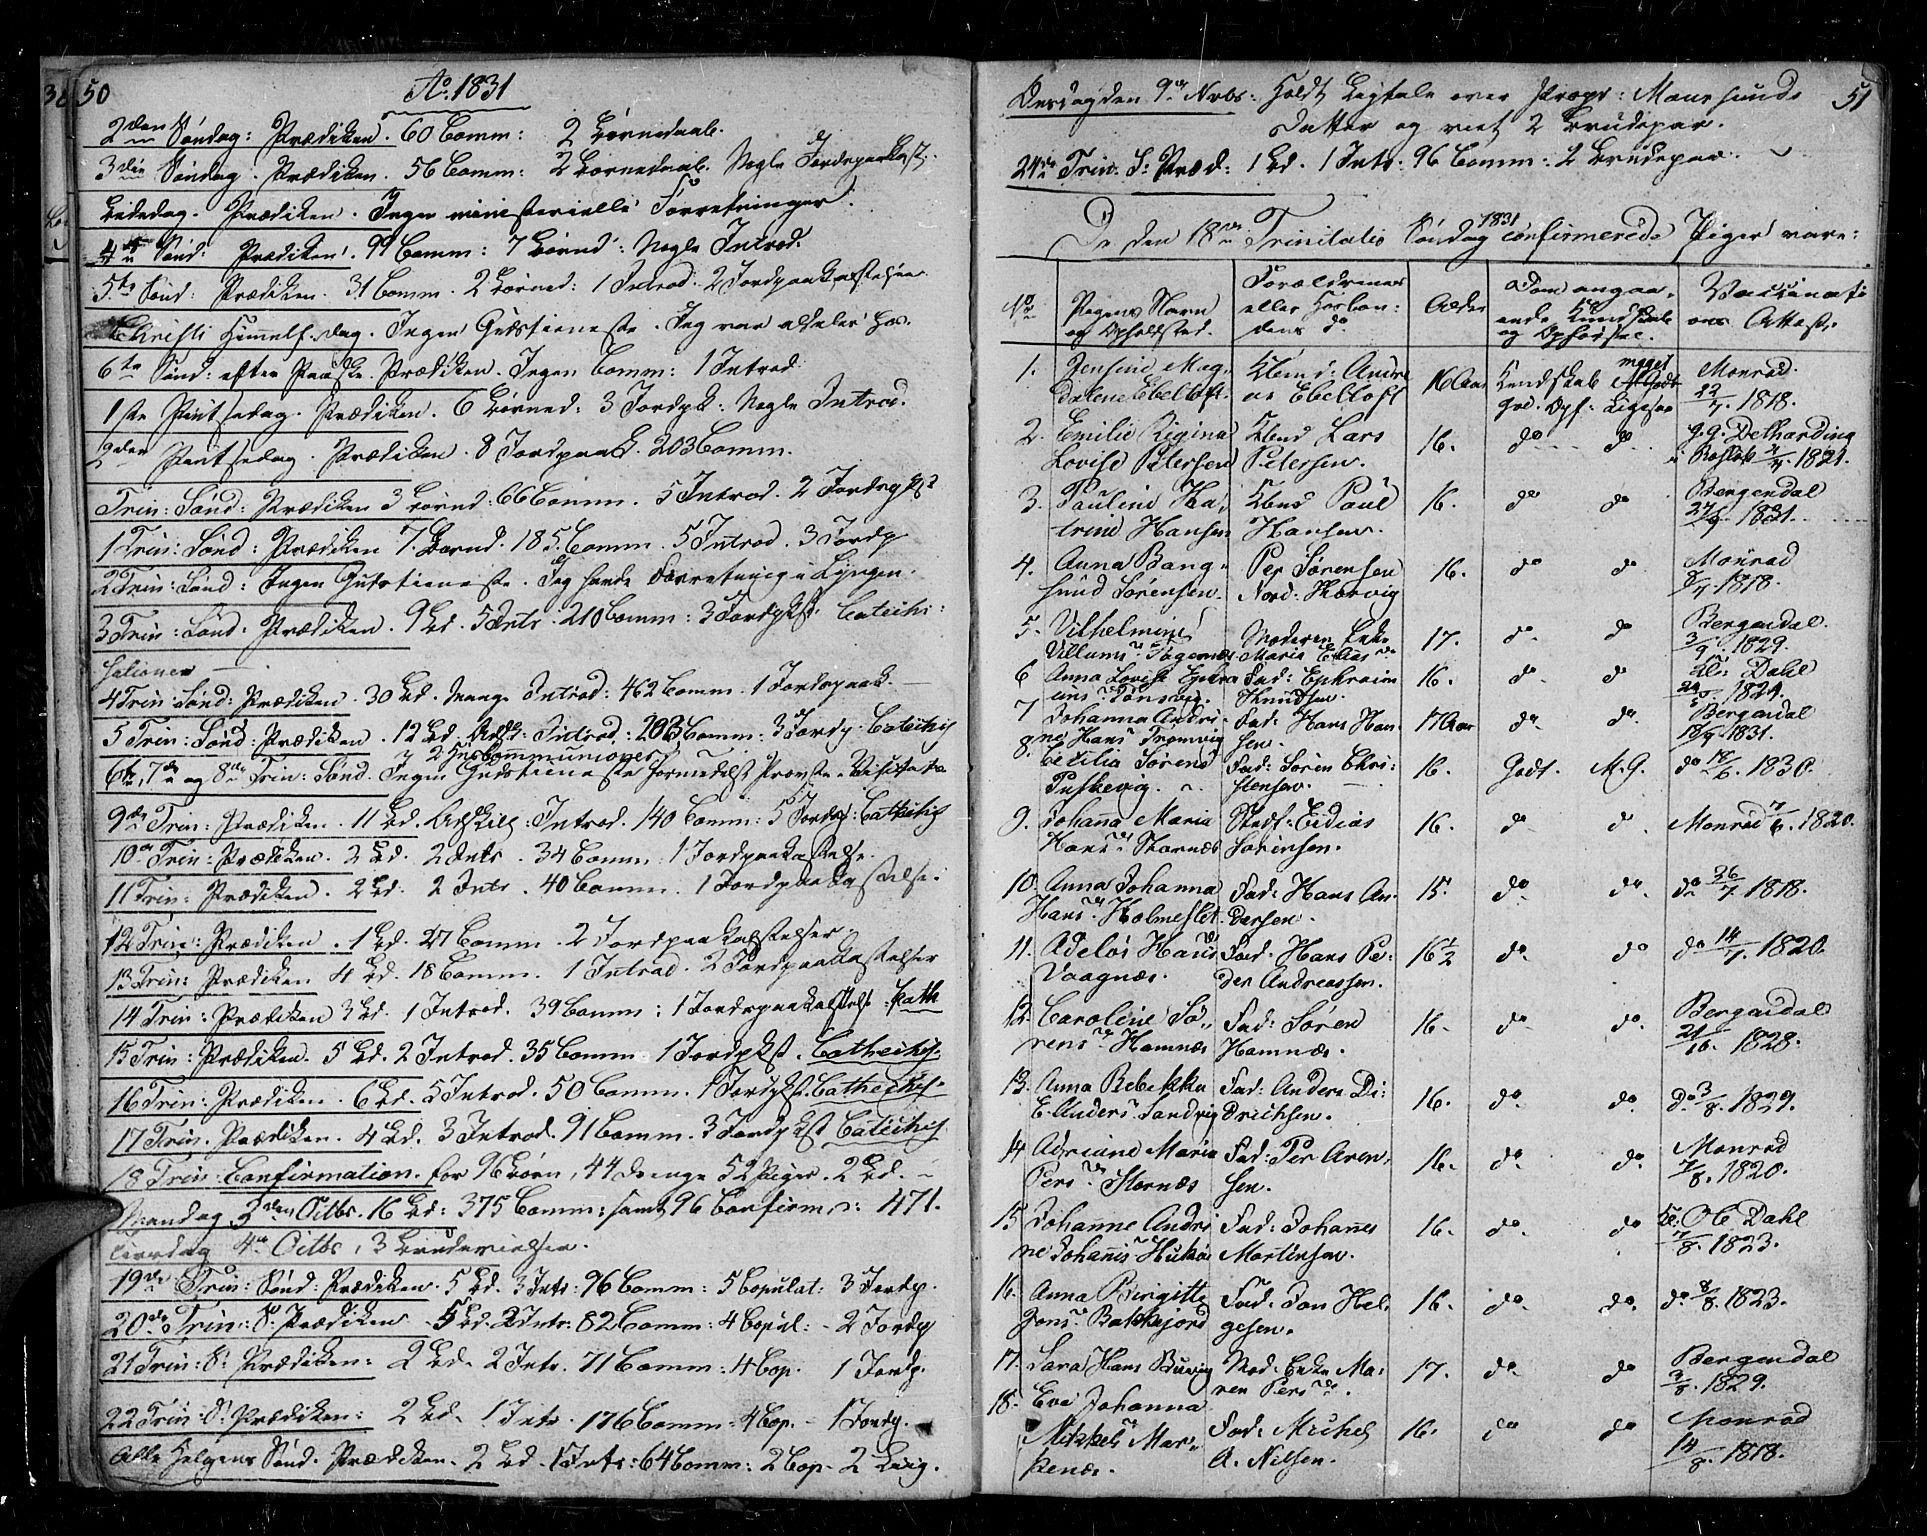 50
Ao. 1831
2den Søndag: Prædiken. 60 Comm: 2 Børnedaab.
3die Søndag. Prædiken. 56 Comm: 2 Børnedaab. Nogle Jordpaakast.
Bededag. Prædiken. Ingen ministerielle Forretninger.
4de Sønd: Prædiken. 99 Comm: 7 Børned: Nogle Introd.
5te Sønd: Prædiken. 31 Comm. 2 Børned: 1 Introd. 2 Jordpaakastelser.
Christi Himmelf. dag. Ingen Gudstieneste. Jeg var
6te Sønd: efter Paaske. Prædiken. Ingen Comm: 1 Introd.
1ste Pintsedag. Prædiken. 6 Børned: 3 Jordpk: Nogle Introd.
2den Pintsedag. Prædiken. 8 Jordpaak. 203 Comm.
Trin: Sønd: Prædiken 3 Børned: 66 Comm. 5 Introd. 2 Jordpkst
1 Trin: Sønd: Prædiken 7 Børned. 185 Comm. 5 Introd. 3 Jordp
2 Trin: Sønd: Ingen Gudstieneste. Jeg havde Forretning i Lyngen.
3 Trin: Sønd: Prædiken. 9 Bd. 5 Intr. 210 Comm: 3 Jordpkst. Catechi:
sationer
4 Trin: Sønd: Prædiken. 30 Bd. Mange Introd: 462 Comm. 1 Jordpaak.
5 Trin: Sønd: Prædiken. 12 Bd. Adsk: Introd. 203 Comm: 3 Jordp. Catechis
6te, 7de og 8de Trin: Sønd. Ingen Gudstieneste formedelst Provste-Visitats
9de Trin: Prædiken. 11 Bd. Adskill: Introd. 140 Comm: 5 Jordp: Catechis
10de Trin: Prædiken. 2 Bd. 2 Intr. 34 Comm. 1 Jordpaakastelse.
11 Trin: Prædiken. 2 Bd. 2 Intr. 40 Comm. 1 Jordpaakastelse.
12 Trin: Prædiken. 1 Bd. 27 Comm. 2 Jordpaakastelser.
13 Trin: Prædiken 4 Bd. 18 Comm. 1 Introd. 2 Jordpaakastelser
14 Trin: Prædiken 3 Bd. 1 Introd. 39 Comm: 1 Jordpaakastelse Cath
15 Trin: Prædiken. 5 Bd. 2 Introd. 35 Comm. 1 Jordpkst. Cathechis.
16 Trin: Prædiken. 6 Bd. 5 Introd. 50 Comm. 1 Jordpkst. Cathechis.
17 Trin. Prædiken. 4 Bd. 3 Introd. 91 Comm. 3 Jordpkst Catechis.
18 Trin: Confirmation. for 96 Børn, 44 Drenge 52 Piger. 2 Bd.
Mandag 3die Octbr. 16 Bd: 375 Comm: samt 96 Confirm: 471.
Tirsdag 4de Octbr, 3 Brudevielser.
19de Trin: Sønd: Prædiken. 5 Bd. 3 Intr: 96 Comm: 5 Copulat: 3 Jordp.
20de Trin: S: Prædiken 5 Bd. 2 Intr: 82 Comm: 4 Copul: 2 Jordp
21 Trin: S: Prædiken: 2 Bd. 2 Intr. 71 Comm: 4 Cop. 1 Jordp.
22 Trin: S: Prædiken: 2 Bd. 1 Intr. 176 Comm: 4 Cop. 1 Jordp.
Alle Helgens Sønd. Prædiken. 2 Bd. 1 Intr: 64 Comm: 2 Cop. 2
51
Onsdag den 9de Nvbr: holdt Ligtale over Propr: Maursunds
Datter og viet 2 Brudepar.
24de Trin: S: Præd: 1 Bd. 1 Intr: 96 Comm: 2 Brudepar.
De den 18de Trinitatis Søndag 1831 confirmerede Piger vare:
No Pigens Navn og Opholdsted. Forældrenes eller Hosbondens do Alder Dom angaaende Kundskab og Opførsel. Vaccinations Attest.
1. Jensine Magdalene Ebeltoft. Kbmd: Andreas Ebeltoft 16 Aar Kundskab meget God. Opf: Ligesaa Monrad. 22/7. 1818.
2. Emilie Regina Lovise Petersen Kbmd Lars Petersen. 16. do do G. G. Delharding i 1821.
3. Pauline Katrine Hansen Kbmd Paul Hansen. 16. do do Bergendal 27/9. 1831.
4. Anna Bangsund Sørensen. Per Sørensen Nord: 16. do do Monrad 8/7. 1818.
5. Vilhelmine Villums Dr. Tagenæs Moderen Enke Maria Elias Dr. 17. do do Bergendal. 3/9. 1829.
6 Anna Lovise Ephraims Dr. Tønsvig. Fad: Ephraim Knudsen. 16. do do Dahl 1824.
7 Johanna Andrine Hans Dr. Tromvig Fad: Hans Hansen. 17 Aar do do Bergendal 18/9. 1831.
8. Cecilia Sørens Dr. Puskevig. Fad: Søren Christensen. 16. Godt. M. G. do 18/6. 1830.
9. Johanna Maria Hans Dr. Stornæs Stedf: Eidias Sørensen. 16. do do Monrad 7/8. 1820.
10. Anna Johanna Hans Dr. Holmeslet. Fad: Hans Andersen. 15. do do do 26/7. 1818.
11. Adelos Hans Dr. Vaagnæs. Fad: Hans Peder Andreassen. 16½ do do do 14/7. 1820.
12. Caroline Sørens Dr. Hamnæs Fad: Søren Hamnæs. 16. do do Bergendal 21/10. 1828.
13. Anna Rebekka E. Anders Dr. Sandvig Fad: Anders Didrichsen. 16. do do do 3/8. 1829.
14 Adriane Maria Pers Dr. Stornæs Fad: Per Arensen. 16. do do Monrad 7/8. 1820.
15 Johanne Andrine Johannis Dr. Fad: Johannes Martinsen. 16. do do Ole Dahl 7/8. 1823.
16. Anna Birgitte Jons Dr. Bakkejord Fad: Jon Helgesen. 16. do do do 8/8. 1823.
17. Sara Hans Buvig Mod: Enke Maren Pers Dr. 17. do do Bergendal 3/8. 1829.
18. Eva Johanna Mikkels Dr. Marienæs. Fad: Michel A. Nilsen. 16. do do Monrad 14/8. 1818.